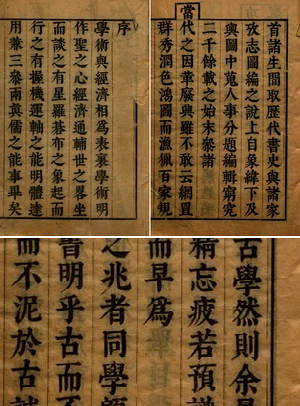 序
學術與經濟相為表裏學術明
作聖之心經濟通輔世之畧坐
而談之有星羅碁布之象起而
行之有握機運軸之能明體達
用兼三叅兩真儒之能事畢矣
首諸生間取歷代書史與諸家
攷志圖編之說上自象緯下及
輿圖中蒐人事分題編輯窮究
二千餘載之始末叅諸
當
代之因革廢興雖不敢云網置
羣秀潤色鴻圖而漁獵百家規
古學然則余
精忘疲若預
而早為
之兆者同學
書明乎古而不
而不泥於古